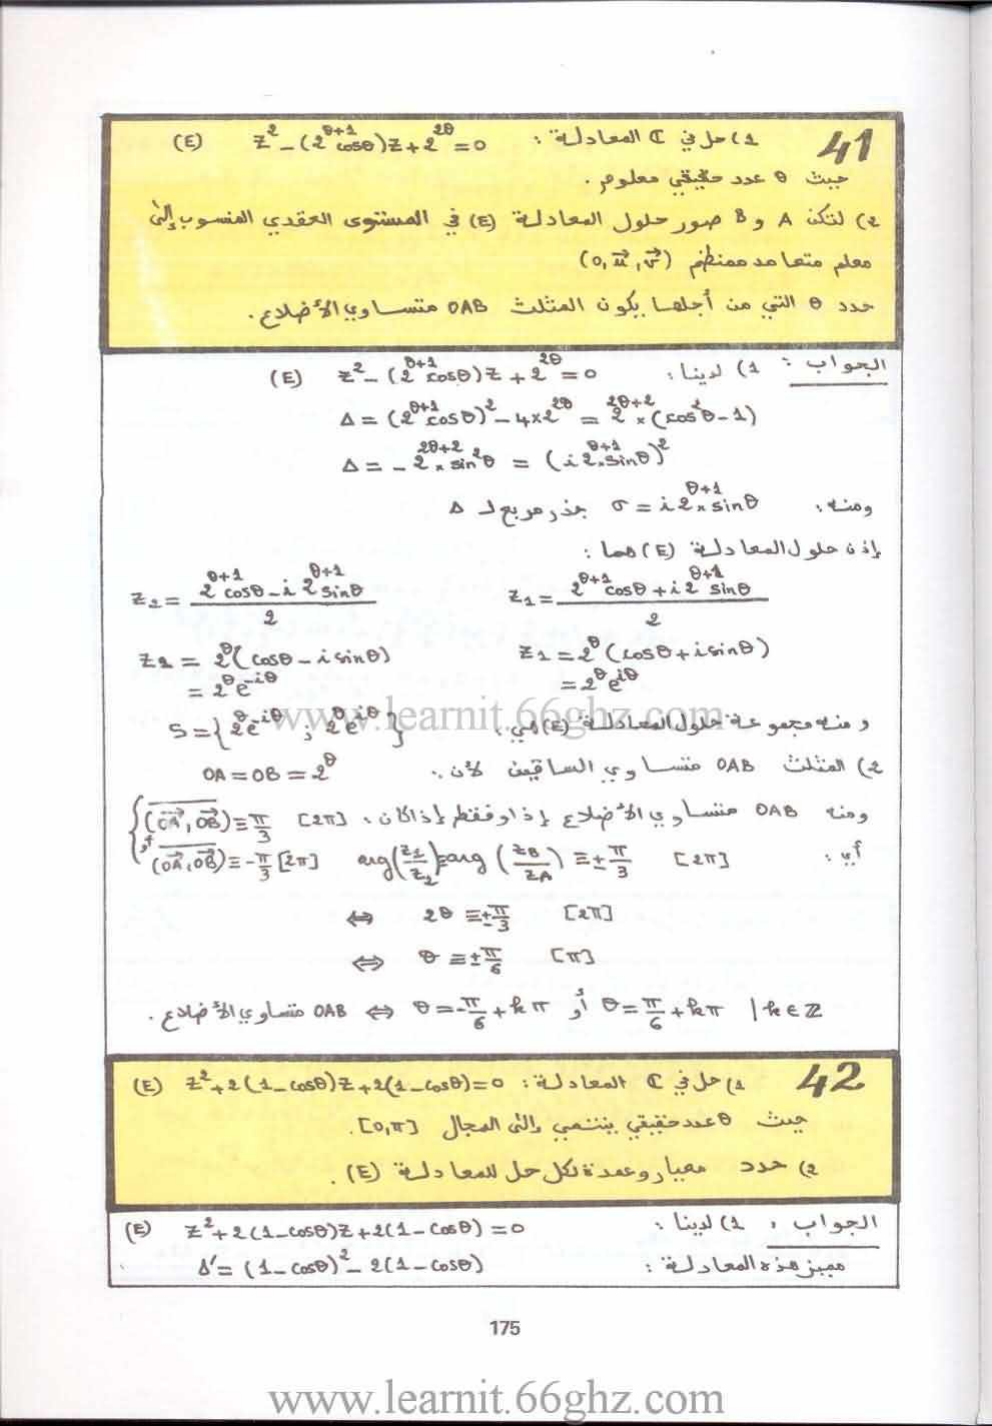 41 1) حل في ℂ المعادلة : z² - (2^(θ+1) cosθ)z + 2^(2θ) = 0 (E)
حيث θ عدد حقيقي معلوم .
2) لتكن A و B صور حلول المعادلة (E) في المستوى العقدي المنسوب إلى
معلم متعامد ممنظم (o, u⃗, v⃗)
حدد θ التي من أجلها يكون المثلث OAB متساوي الأضلاع .
الجواب : 1) لدينا : z² - (2^(θ+1) cosθ)z + 2^(2θ) = 0 (E)
Δ = (2^(θ+1) cosθ)² - 4×2^(2θ) = 2^(2θ+2) × (cos²θ - 1)
Δ = - 2^(2θ+2) × sin²θ = (i 2^(θ+1) × sinθ)²
ومنه : σ = i 2^(θ+1) × sinθ جذر مربع لـ Δ
إذن حلول المعادلة (E) هما :
z₁ = (2^(θ+1) cosθ + i 2^(θ+1) sinθ) / 2 z₂ = (2^(θ+1) cosθ - i 2^(θ+1) sinθ) / 2
z₁ = 2^θ (cosθ + i sinθ) z₂ = 2^θ (cosθ - i sinθ)
= 2^θ e^(iθ) = 2^θ e^(-iθ)
و منه مجموعة حلول المعادلة (E) هي : S = {2^θ e^(-iθ) ; 2^θ e^(iθ)}
2) المثلث OAB متساوي الساقين لأن : OA = OB = 2^θ
ومنه OAB متساوي الأضلاع إذا وفقط إذا كان : (OA⃗, OB⃗) ≡ π/3 [2π]
أو (OA⃗, OB⃗) ≡ -π/3 [2π]
أي : arg(z₁/z₂) = arg(z_B/z_A) ≡ ± π/3 [2π]
⇔ 2θ ≡ ± π/3 [2π]
⇔ θ ≡ ± π/6 [π]
OAB متساوي الأضلاع ⇔ θ = -π/6 + kπ أو θ = π/6 + kπ | k ∈ ℤ .
42 1) حل في ℂ المعادلة : z² + 2(1 - cosθ)z + 2(1 - cosθ) = 0 (E)
حيث θ عدد حقيقي ينتمي إلى المجال [0, π] .
2) حدد معيار وعمدة لكل حل للمعادلة (E) .
الجواب : 1) لدينا : z² + 2(1 - cosθ)z + 2(1 - cosθ) = 0 (E)
مميز هذه المعادلة : Δ' = (1 - cosθ)² - 2(1 - cosθ)
175
www.learnit.66ghz.com
www.learnit.66ghz.com